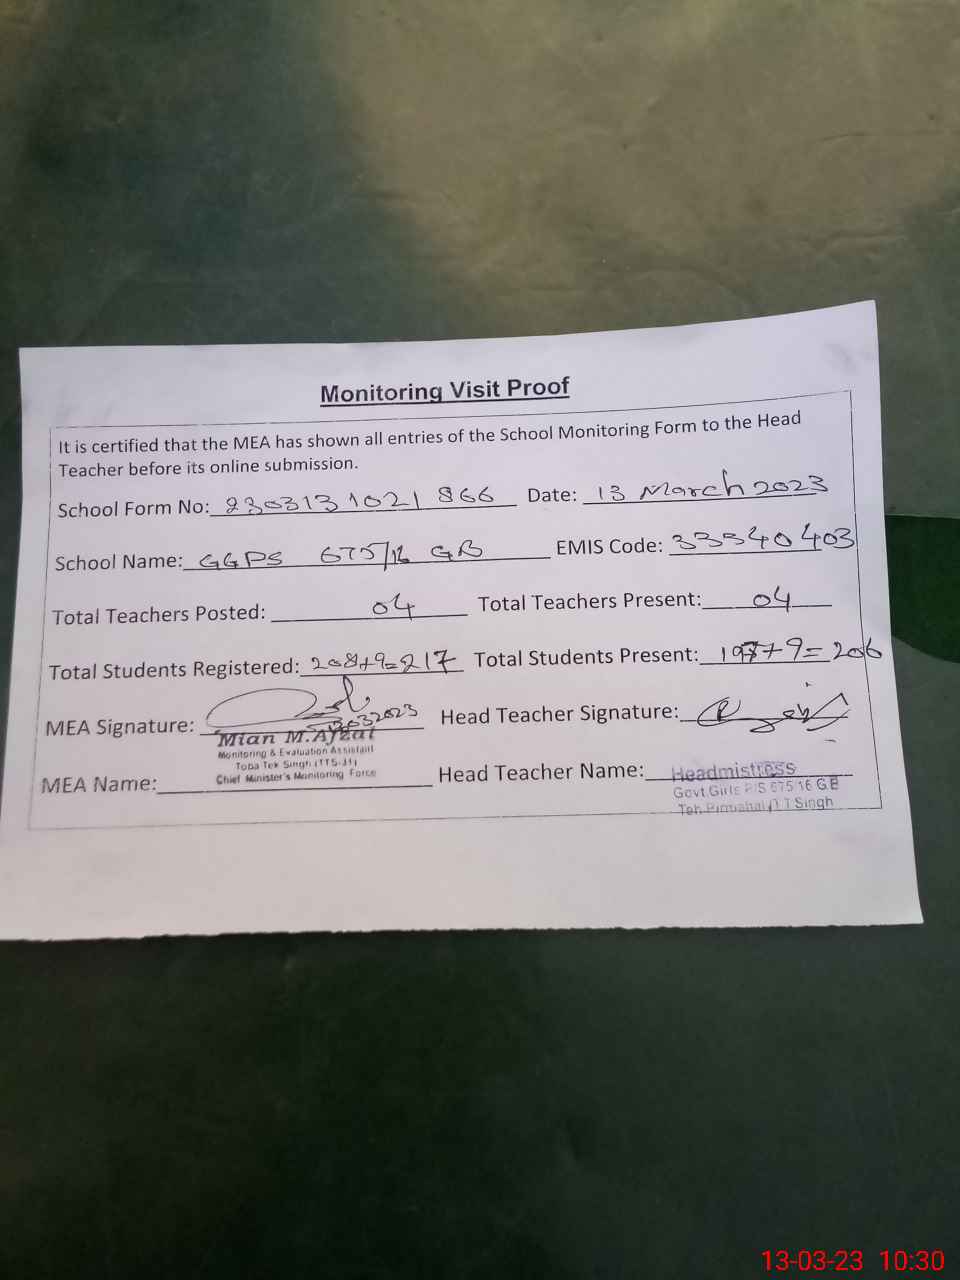 Monitoring Visit Proof
It is certified that the MEA has shown all entries of the School Monitoring Form to the Head
Teacher before its online submission.
School Form No: 2303131021866 Date: 13 March 2023
School Name: GGPS 675/16 GB EMIS Code: 33340403
Total Teachers Posted: 04 Total Teachers Present: 04
Total Students Registered: 208+9=217 Total Students Present: 197+9=206
MEA Signature: 13032023 Head Teacher Signature:
Mian M. Afzal
Monitoring & Evaluation Assistant
Toba Tek Singh (TTS-31)
Chief Minister's Monitoring Force
MEA Name: Head Teacher Name: Headmistress
Govt. Girls P/S 675/16 G.B
Teh. Pirmahal, T.T Singh
13-03-23 10:30